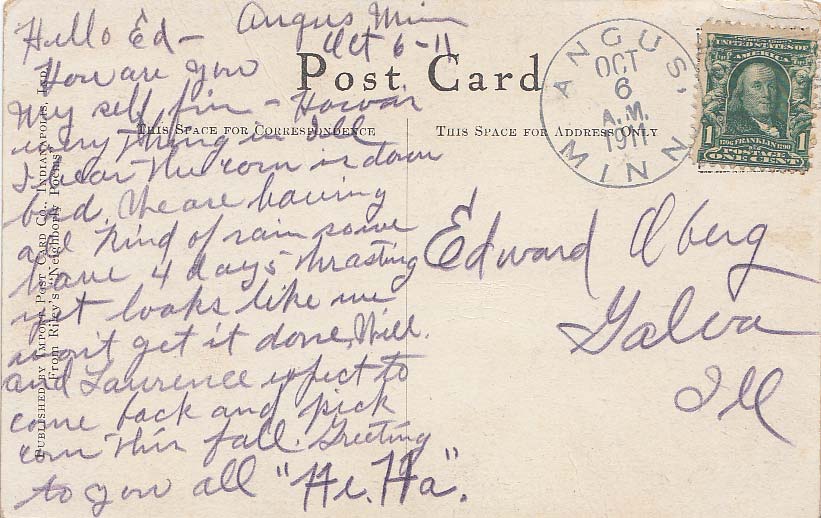 Hello Ed- Angus Minn
Oct 6-11
How are you
My self fin - How air
every thing in Ill
I hear the corn is down
bad. We are having
all kind of rain some
have 4 days thrasting
yet looks like we
won't get it done, Will
and Laurence expect to
come back and pick
corn this fall. Greeting
to you all "He. Ha".
Post Card
THIS SPACE FOR CORRESPONDENCE
THIS SPACE FOR ADDRESS ONLY
PUBLISHED BY IMPORT POST CARD CO., INDIANAPOLIS, IND.
From Riley's "Neighborly Poems"
ANGUS, MINN
OCT
6
A.M.
1911
UNITED STATES OF AMERICA
1706 FRANKLIN 1790
POSTAGE
1 ONE CENT 1
Edward Oberg
Galva
Ill